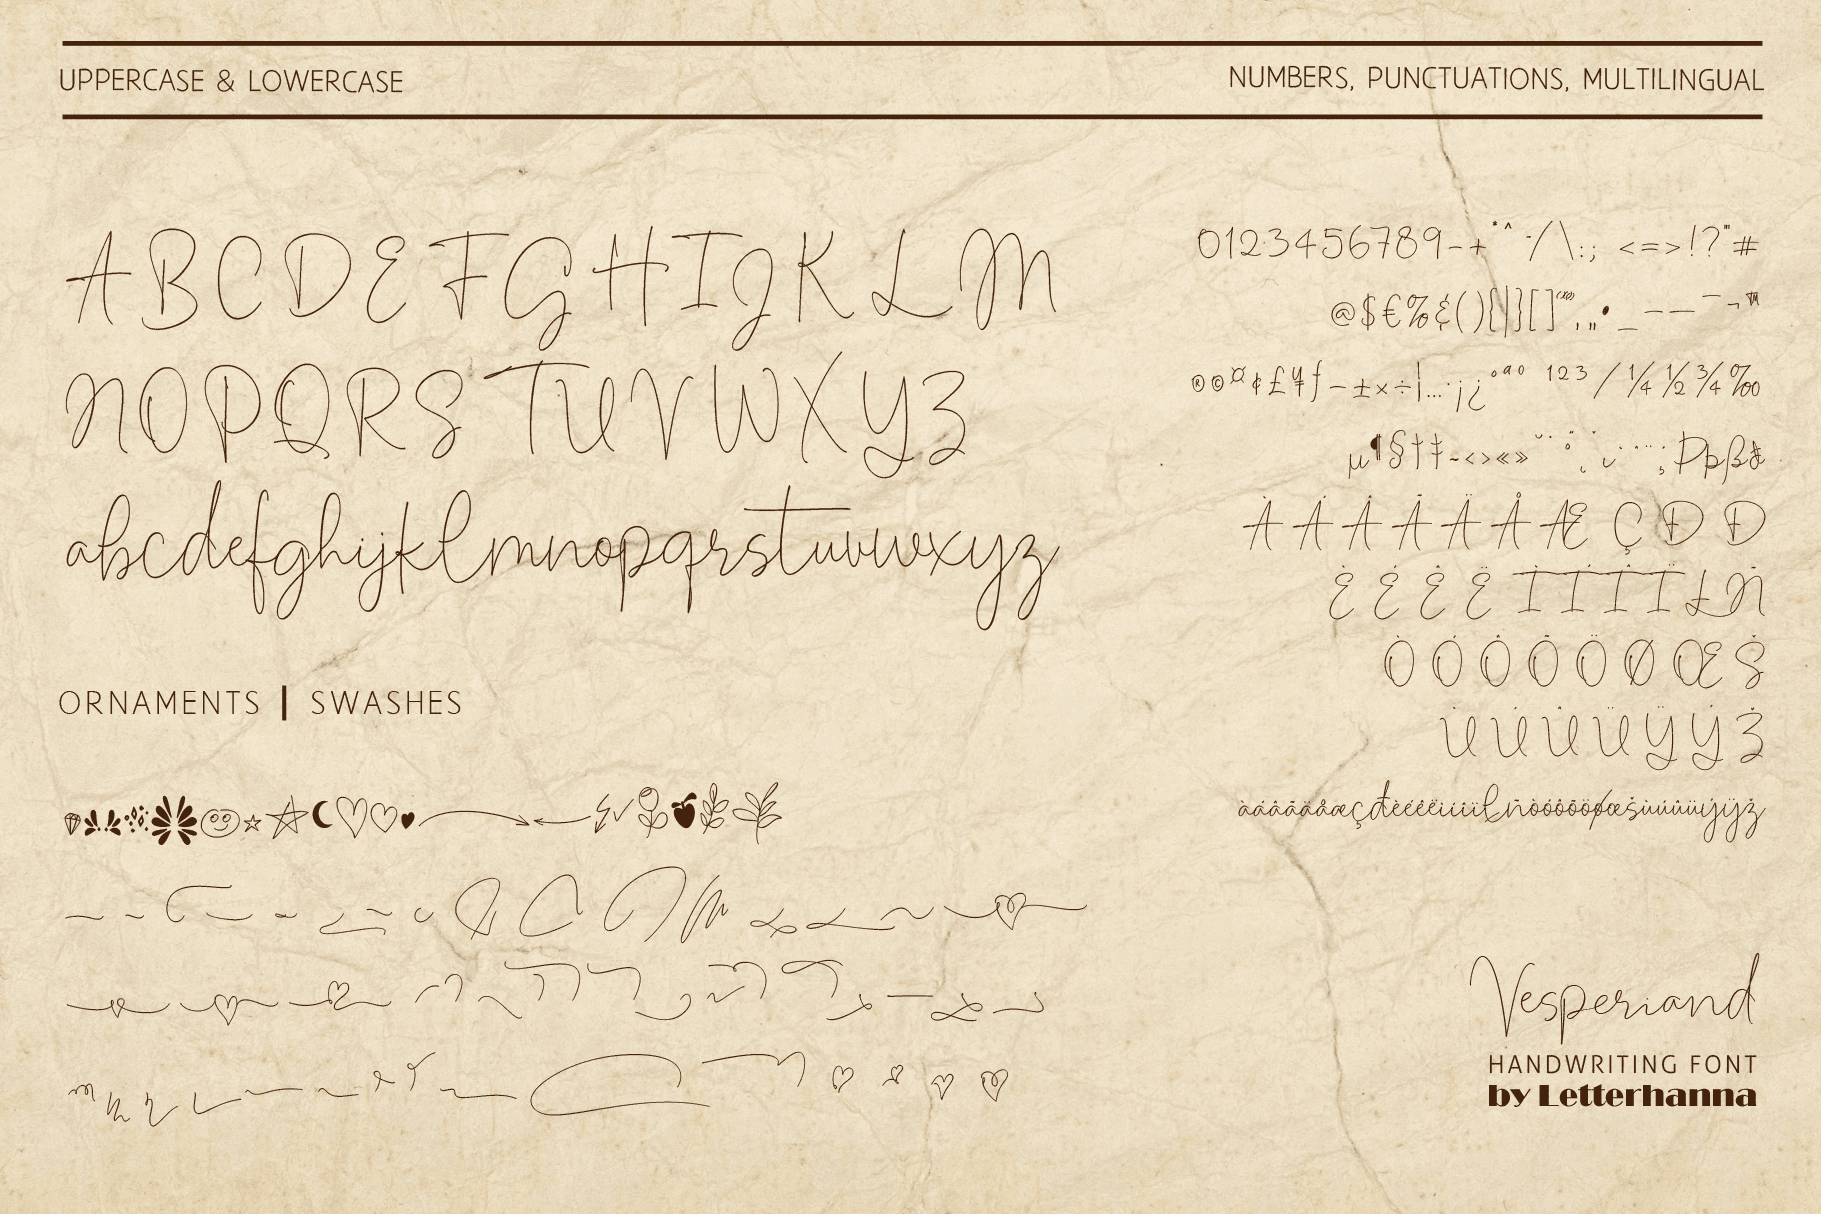 UPPERCASE & LOWERCASE
NUMBERS, PUNCTUATIONS, MULTILINGUAL
ABCDEFGHIJKLM
NOPQRSTUVWXYZ
abcdefghijklmnopqrstuvwxyz
0123456789-+*^·/\:; <=>!?"#
@$€%&(){|}[]
®©¤¢£¥ƒ–±×÷|…·¡¿°ªº 123 / ¼ ½ ¾ ‰
µ¶§†‡~‹›«»
ÀÁÂÃÄÅÆÇĐÐ
ÈÉÊËÌÍÎÏŁÑ
ÒÓÔÕÖØŒŠ
ÙÚÛÜŸÝŽ
àáâãäåæçđèéêëìíîïłñòóôõöøœšùúûüýÿž
ORNAMENTS | SWASHES
Vesperiand
HANDWRITING FONT
by Letterhanna